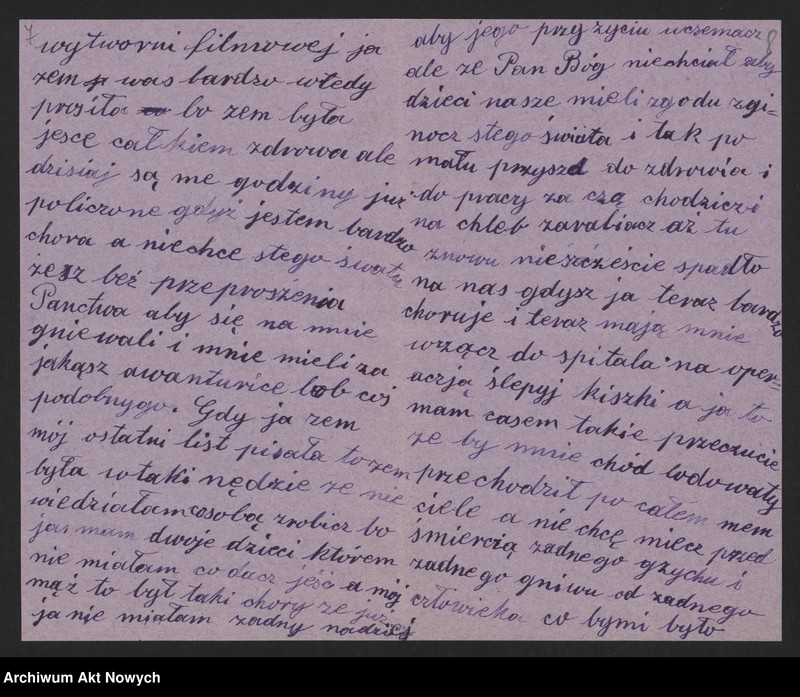 7
wytworni filmowej ja
zem was bardzo wtedy
prosiła bo zem była
jesce całkiem zdrowa ale
dzisiaj są me godziny już
policzone gdyż jestem bardzo
chora a niechce stego świata
zesz beż przeproszenia
Panctwa aby się na mnie
gniewali i mnie mieli za
jakąsz awanturice lob coś
podobnygo. Gdy ja zem
mój ostatni list pisała to zem
była wtaki nędzie ze nie
wiedziałam cosobą zrobicz bo
jas mam dwoje dzieci którem
nie miałam co dacz jesc a mój
mąż to był taki chory ze już
ja nie miałam zadny nadzieji
8
aby jego przy życiu uczemacz
ale ze Pan Bóg niechciał aby
dzieci nasze mieli zgodu zgi=
nocz stego świata i tak po
mału przyszed do zdrowia i
do pracy za czą chodzicz i
na chleb zarabiacz aż tu
znowu nieszczeście spadło
na nas gdysz ja teraz bardzo
choruje i teraz mają mnie
wzącz do spitala na oper=
aczją ślepyj kiszki a ja to
mam casem takie przeczucie
ze by mnie chód lodowaty
przechodził po całem mem
ciele a nie chcę miecz przed
śmiercią zadnego grzychu i
zadnego gniwu od zadnego
człowieka co bymi było
Archiwum Akt Nowych